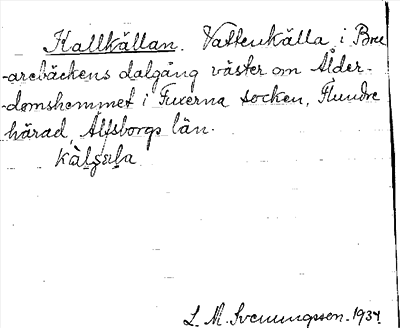 Kallkällan. Vattenkälla i Bre-
-arebäckens dalgång väster om Ålder-
-domshemmet i Fuxerna socken, Flundre
härad, Älfsborgs län.
L. M. Svenungsson. 1934.